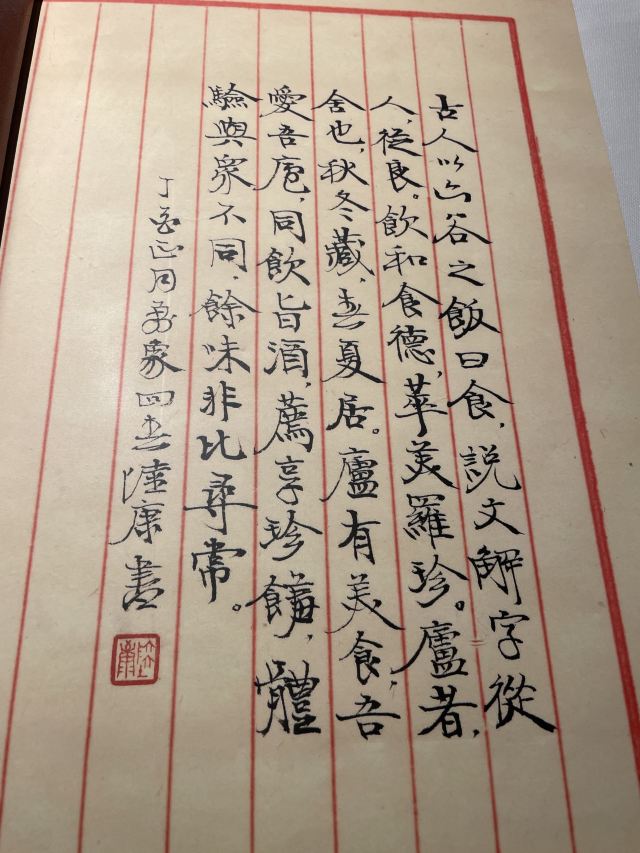 古人以六谷之飯曰食，説文解字從
人，從良。飲和食德，萃美羅珍。廬者，
舍也，秋冬藏，春夏居。廬有美食，吾
愛吾庖，同飲旨酒，薦享珍饈，體
驗與衆不同，餘味非比尋常。
丁酉正月萬象回春陸康書
陸康